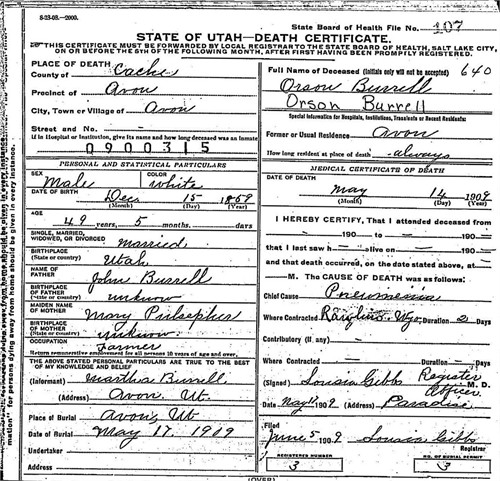 8-23-08.—2000.
State Board of Health File No. 107
STATE OF UTAH—DEATH CERTIFICATE.
THIS CERTIFICATE MUST BE FORWARDED BY LOCAL REGISTRAR TO THE STATE BOARD OF HEALTH, SALT LAKE CITY,
ON OR BEFORE THE 5TH OF THE FOLLOWING MONTH, AFTER FIRST HAVING BEEN PROMPTLY REGISTERED.
PLACE OF DEATH
County of Cache
Precinct of Avon
City, Town or Village of Avon
Street and No.
If in Hospital or Institution, give its name and how long deceased was an inmate
0900315
PERSONAL AND STATISTICAL PARTICULARS
SEX Male COLOR white
DATE OF BIRTH Dec 15 1859
(Month) (Day) (Year)
AGE
49 years, 5 months, days
SINGLE, MARRIED,
WIDOWED, OR DIVORCED Married
BIRTHPLACE
(State or country) Utah
NAME OF
FATHER John Burrell
BIRTHPLACE
OF FATHER
(State or country) unknow
MAIDEN NAME
OF MOTHER Mary
BIRTHPLACE
OF MOTHER
(State or country) unknow
OCCUPATION Farmer
Return remunerative employment for all persons 10 years of age and over.
THE ABOVE STATED PERSONAL PARTICULARS ARE TRUE TO THE BEST
OF MY KNOWLEDGE AND BELIEF
(Informant) Martha Burrell
(Address) Avon Ut.
Place of Burial Avon, Ut
Date of Burial May 17 1909
Undertaker
Address
Full Name of Deceased (Initials only will not be accepted) 640
Orson Burrell
Orson Burrell
Special Information for Hospitals, Institutions, Transients or Recent Residents:
Former or Usual Residence Avon
How long resident at place of death always
MEDICAL CERTIFICATE OF DEATH
DATE OF DEATH
May 14 1909
(Month) (Day) (Year)
I HEREBY CERTIFY, That I attended deceased from
190 to 190
that I last saw h alive on 190
and that death occurred, on the date stated above, at
M. The CAUSE OF DEATH was as follows:
Chief Cause Pneumonia
Where Contracted Rawlins Wyo. Duration 2 Days
Contributory (if any)
Where Contracted Duration Days
(Signed) Louisa Gibbs Register M. D.
Officer
May 17 1909 (Address) Paradise
Filed
June 5 1909 Louisa Gibbs
Registrar
REGISTERED NUMBER NO. OF BURIAL PERMIT
3 3
(OVER)
mation for persons dying away from home should be given in every instance.